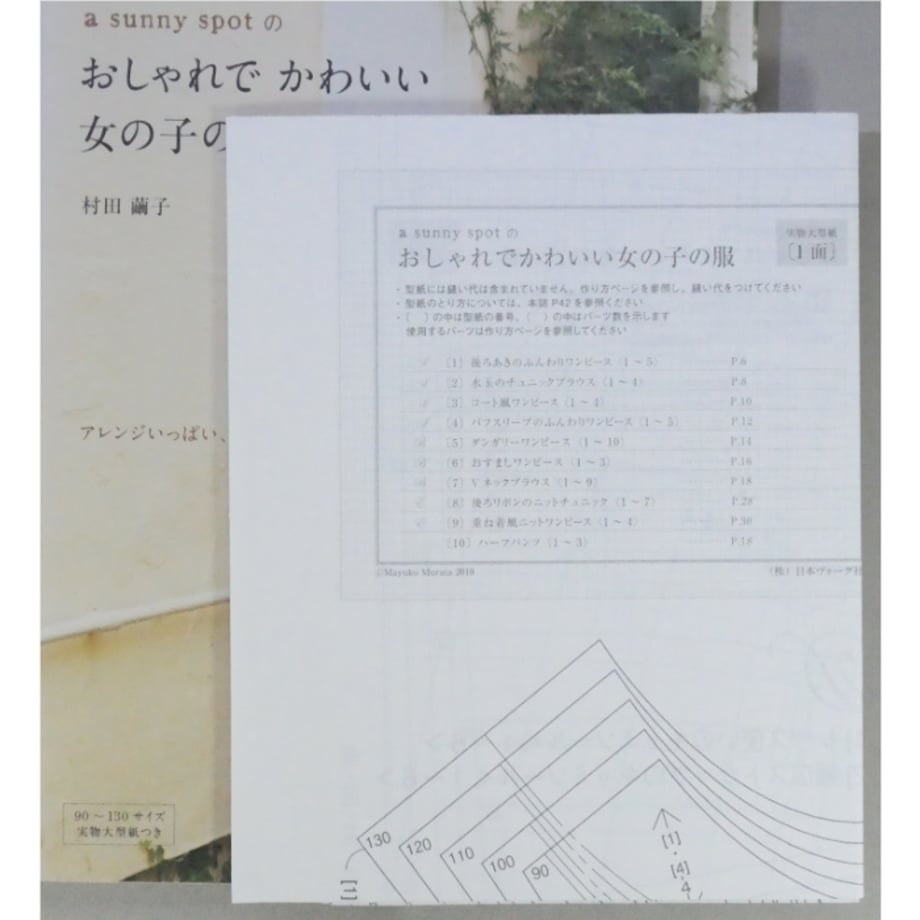 a sunny spot の
おしゃれで かわいい
女の子の
村田 繭子
アレンジいっぱい、
90～130サイズ
実物大型紙つき
a sunny spot の
おしゃれでかわいい女の子の服
実物大型紙
〔1面〕
・型紙には縫い代は含まれていません。作り方ページを参照し、縫い代をつけてください
・型紙のとり方については、本誌P42を参照ください
・〔 〕の中は型紙の番号、( )の中はパーツ数を示します
使用するパーツは作り方ページを参照してください
〔1〕後ろあきのふんわりワンピース（1～5） ……… P.6
〔2〕水玉のチュニックブラウス（1～4） ……… P.8
〔3〕コート風ワンピース（1～4） ……… P.10
〔4〕パフスリーブのふんわりワンピース（1～5） ……… P.12
〔5〕ダンガリーワンピース（1～10） ……… P.14
〔6〕おすましワンピース（1～3） ……… P.16
〔7〕Vネックブラウス（1～9） ……… P.18
〔8〕後ろリボンのニットチュニック（1～7） ……… P.28
〔9〕重ね着風ニットワンピース（1～4） ……… P.30
〔10〕ハーフパンツ（1～3） ……… P.18
©Mayuko Murata 2010
（株）日本ヴォーグ社
130
120
110
100
90
[1]
[1]
・
[4]
4